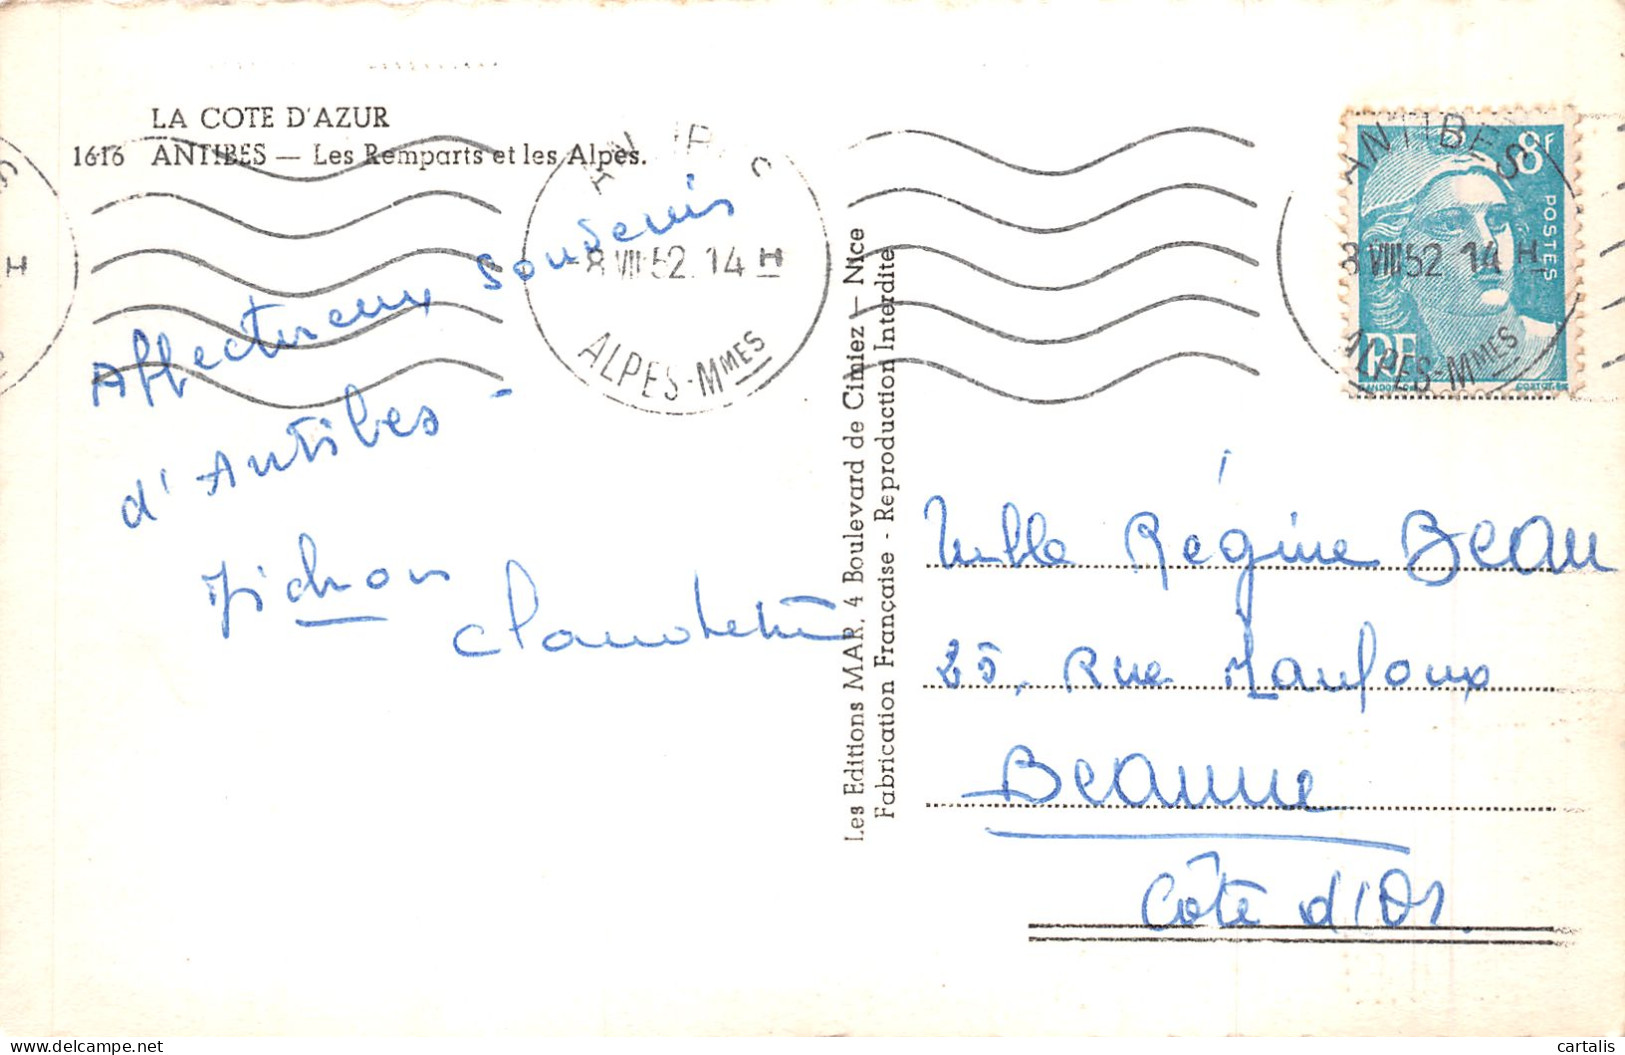 LA COTE D'AZUR
1616 ANTIBES — Les Remparts et les Alpes.
Affectueux souvenirs
d'Antibes -
Claudette
ANTIBES
8 VIII 52 14 H
ALPES-MMES
ANTIBES
8 VIII 52 14 H
ALPES-MMES
8F
POSTES
RF
GANDON
Les Editions MAR, 4 Boulevard de Cimiez — Nice
Fabrication Française - Reproduction Interdite
Mlle Régine Beau
25, Rue
Beaune
Côte d'Or.
H
cartalis
delcampe.net